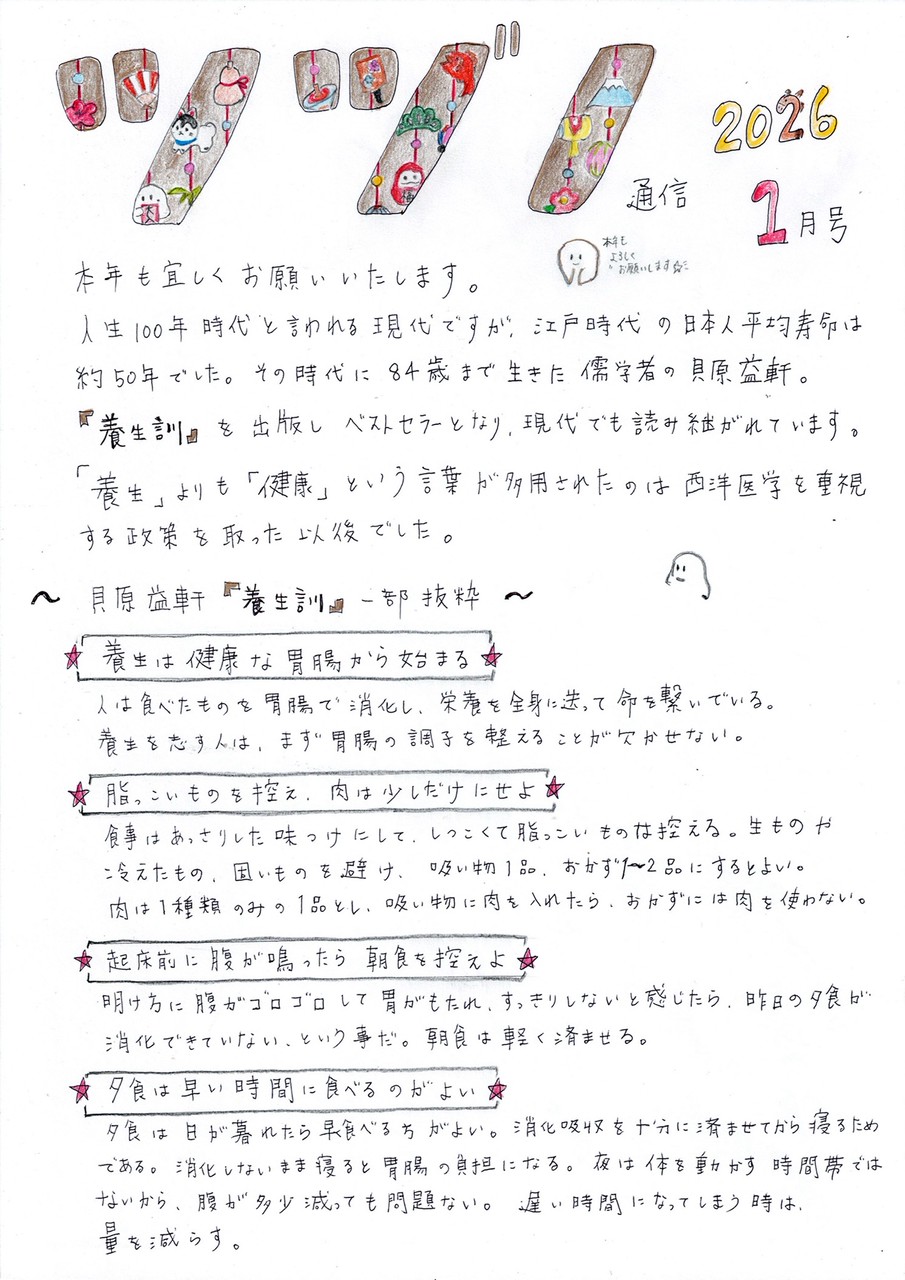 ツヅノ
通信
2026
1月号
本年も
よろしく
お願いします☆
本年も宜しくお願いいたします。
人生100年時代と言われる現代ですが、江戸時代の日本人平均寿命は
約50年でした。その時代に84歳まで生きた儒学者の貝原益軒。
『養生訓』を出版しベストセラーとなり、現代でも読み継がれています。
「養生」よりも「健康」という言葉が多用されたのは西洋医学を重視
する政策を取った以後でした。
～ 貝原益軒『養生訓』一部抜粋 ～
★養生は健康な胃腸から始まる★
人は食べたものを胃腸で消化し、栄養を全身に送って命を繋いでいる。
養生を志す人は、まず胃腸の調子を整えることが欠かせない。
★脂っこいものを控え、肉は少しだけにせよ★
食事はあっさりした味つけにして、しつこくて脂っこいものは控える。生ものや
冷えたもの、固いものを避け、吸い物1品、おかず1~2品にするとよい。
肉は1種類のみの1品とし、吸い物に肉を入れたら、おかずには肉を使わない。
★起床前に腹が鳴ったら朝食を控えよ★
明け方に腹がゴロゴロして胃がもたれ、すっきりしないと感じたら、昨日の夕食が
消化できていない、という事だ。朝食は軽く済ませる。
★夕食は早い時間に食べるのがよい★
夕食は日が暮れたら早食べる方がよい。消化吸収を十分に済ませてから寝るため
である。消化しないまま寝ると胃腸の負担になる。夜は体を動かす時間帯では
ないから、腹が多少減っても問題ない。遅い時間になってしまう時は、
量を減らす。